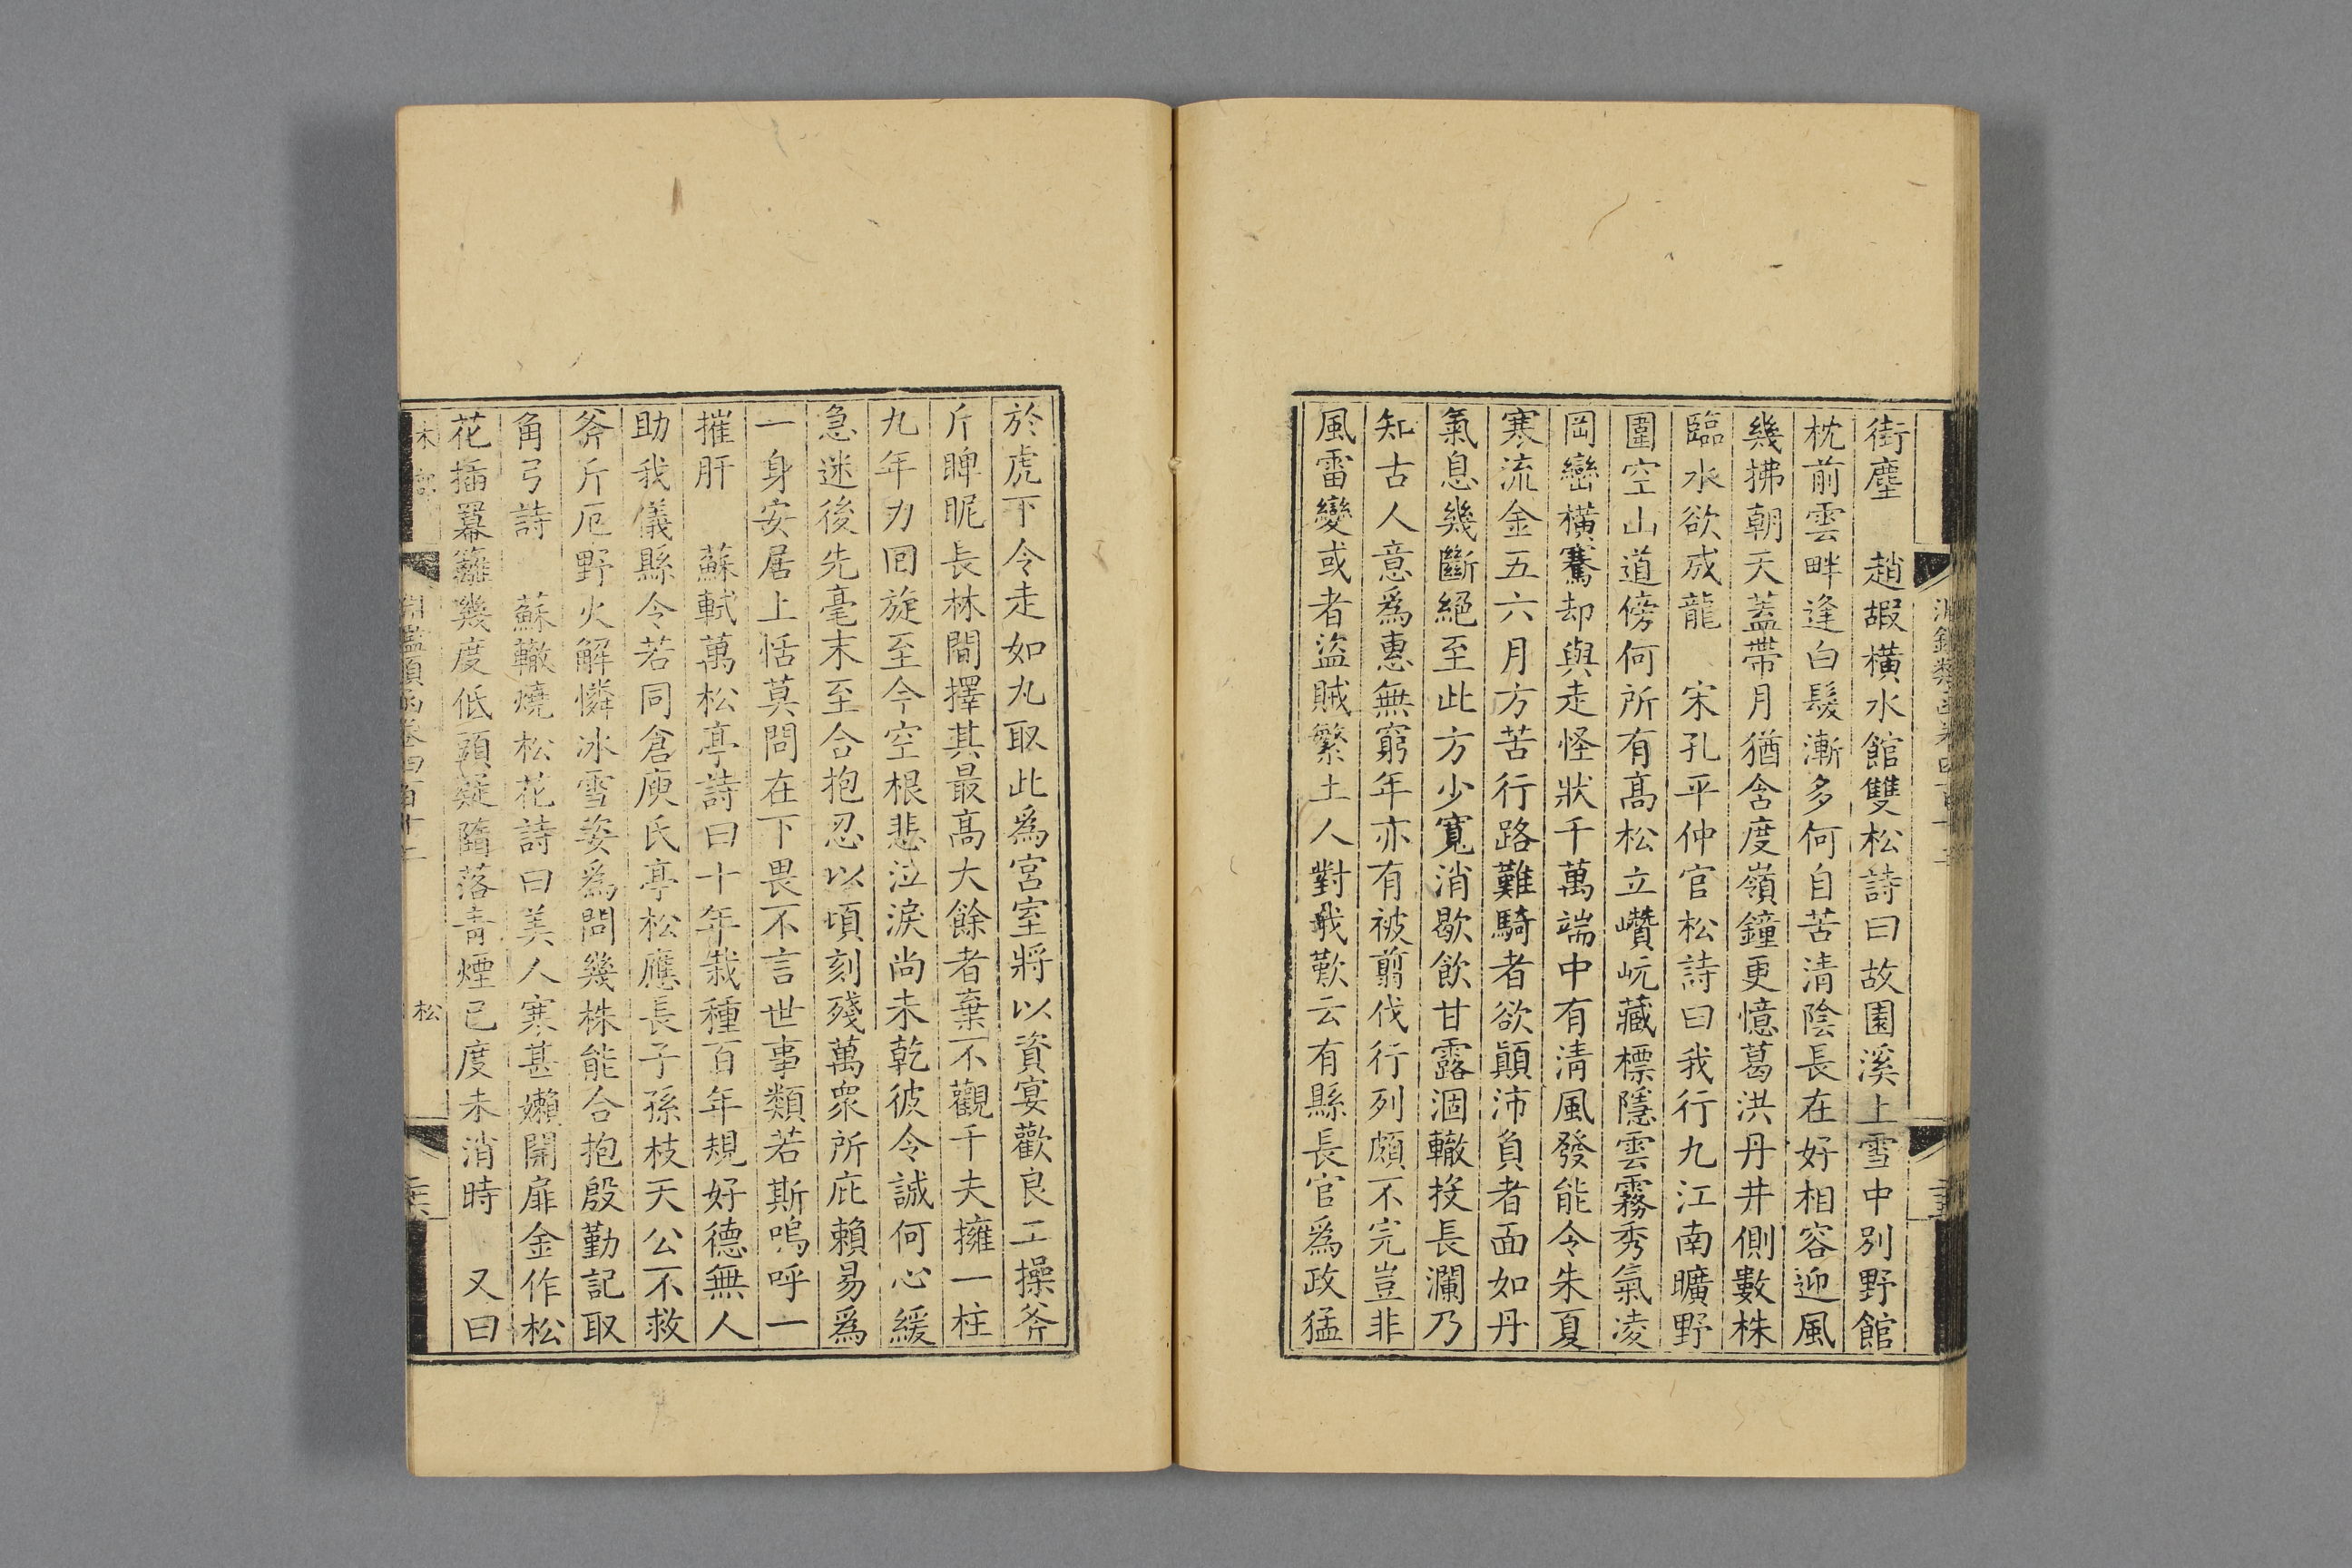 街塵　趙嘏橫水館雙松詩曰故園溪上雪中別野館
枕前雲畔逢白髮漸多何自苦清陰長在好相容迎風
幾拂朝天蓋帶月猶含度嶺鐘更憶葛洪丹井側數株
臨水欲成龍　宋孔平仲官松詩曰我行九江南曠野
圍空山道傍何所有高松立巑岏藏標隱雲霧秀氣凌
岡巒橫騫却與走怪狀千萬端中有清風發能令朱夏
寒流金五六月方苦行路難騎者欲顚沛負者面如丹
氣息幾斷絕至此方少寬消歇飲甘露涸轍投長瀾乃
知古人意爲惠無窮年亦有被翦伐行列頗不完豈非
風雷變或者盜賊繁土人對我歎云有縣長官爲政猛
於虎下令走如丸取此爲宮室將以資宴歡良工操斧
斤睥睨長林間擇其最高大餘者棄不觀千夫擁一柱
九年力回旋至今空根悲泣淚尚未乾彼令誠何心緩
急迷後先毫末至合抱忍以頃刻殘萬衆所庇賴易爲
一身安居上恬莫問在下畏不言世事類若斯嗚呼一
摧肝　蘇軾萬松亭詩曰十年栽種百年規好德無人
助我儀縣令若同倉庾氏亭松應長子孫枝天公不救
斧斤厄野火解憐冰雪姿爲問幾株能合抱殷勤記取
角弓詩　蘇轍燒松花詩曰美人寒甚嬾開扉金作松
花插羃䍦幾度低頭疑墮落靑煙已度未消時　又曰
木部
淵鑑類函卷四百十二
松